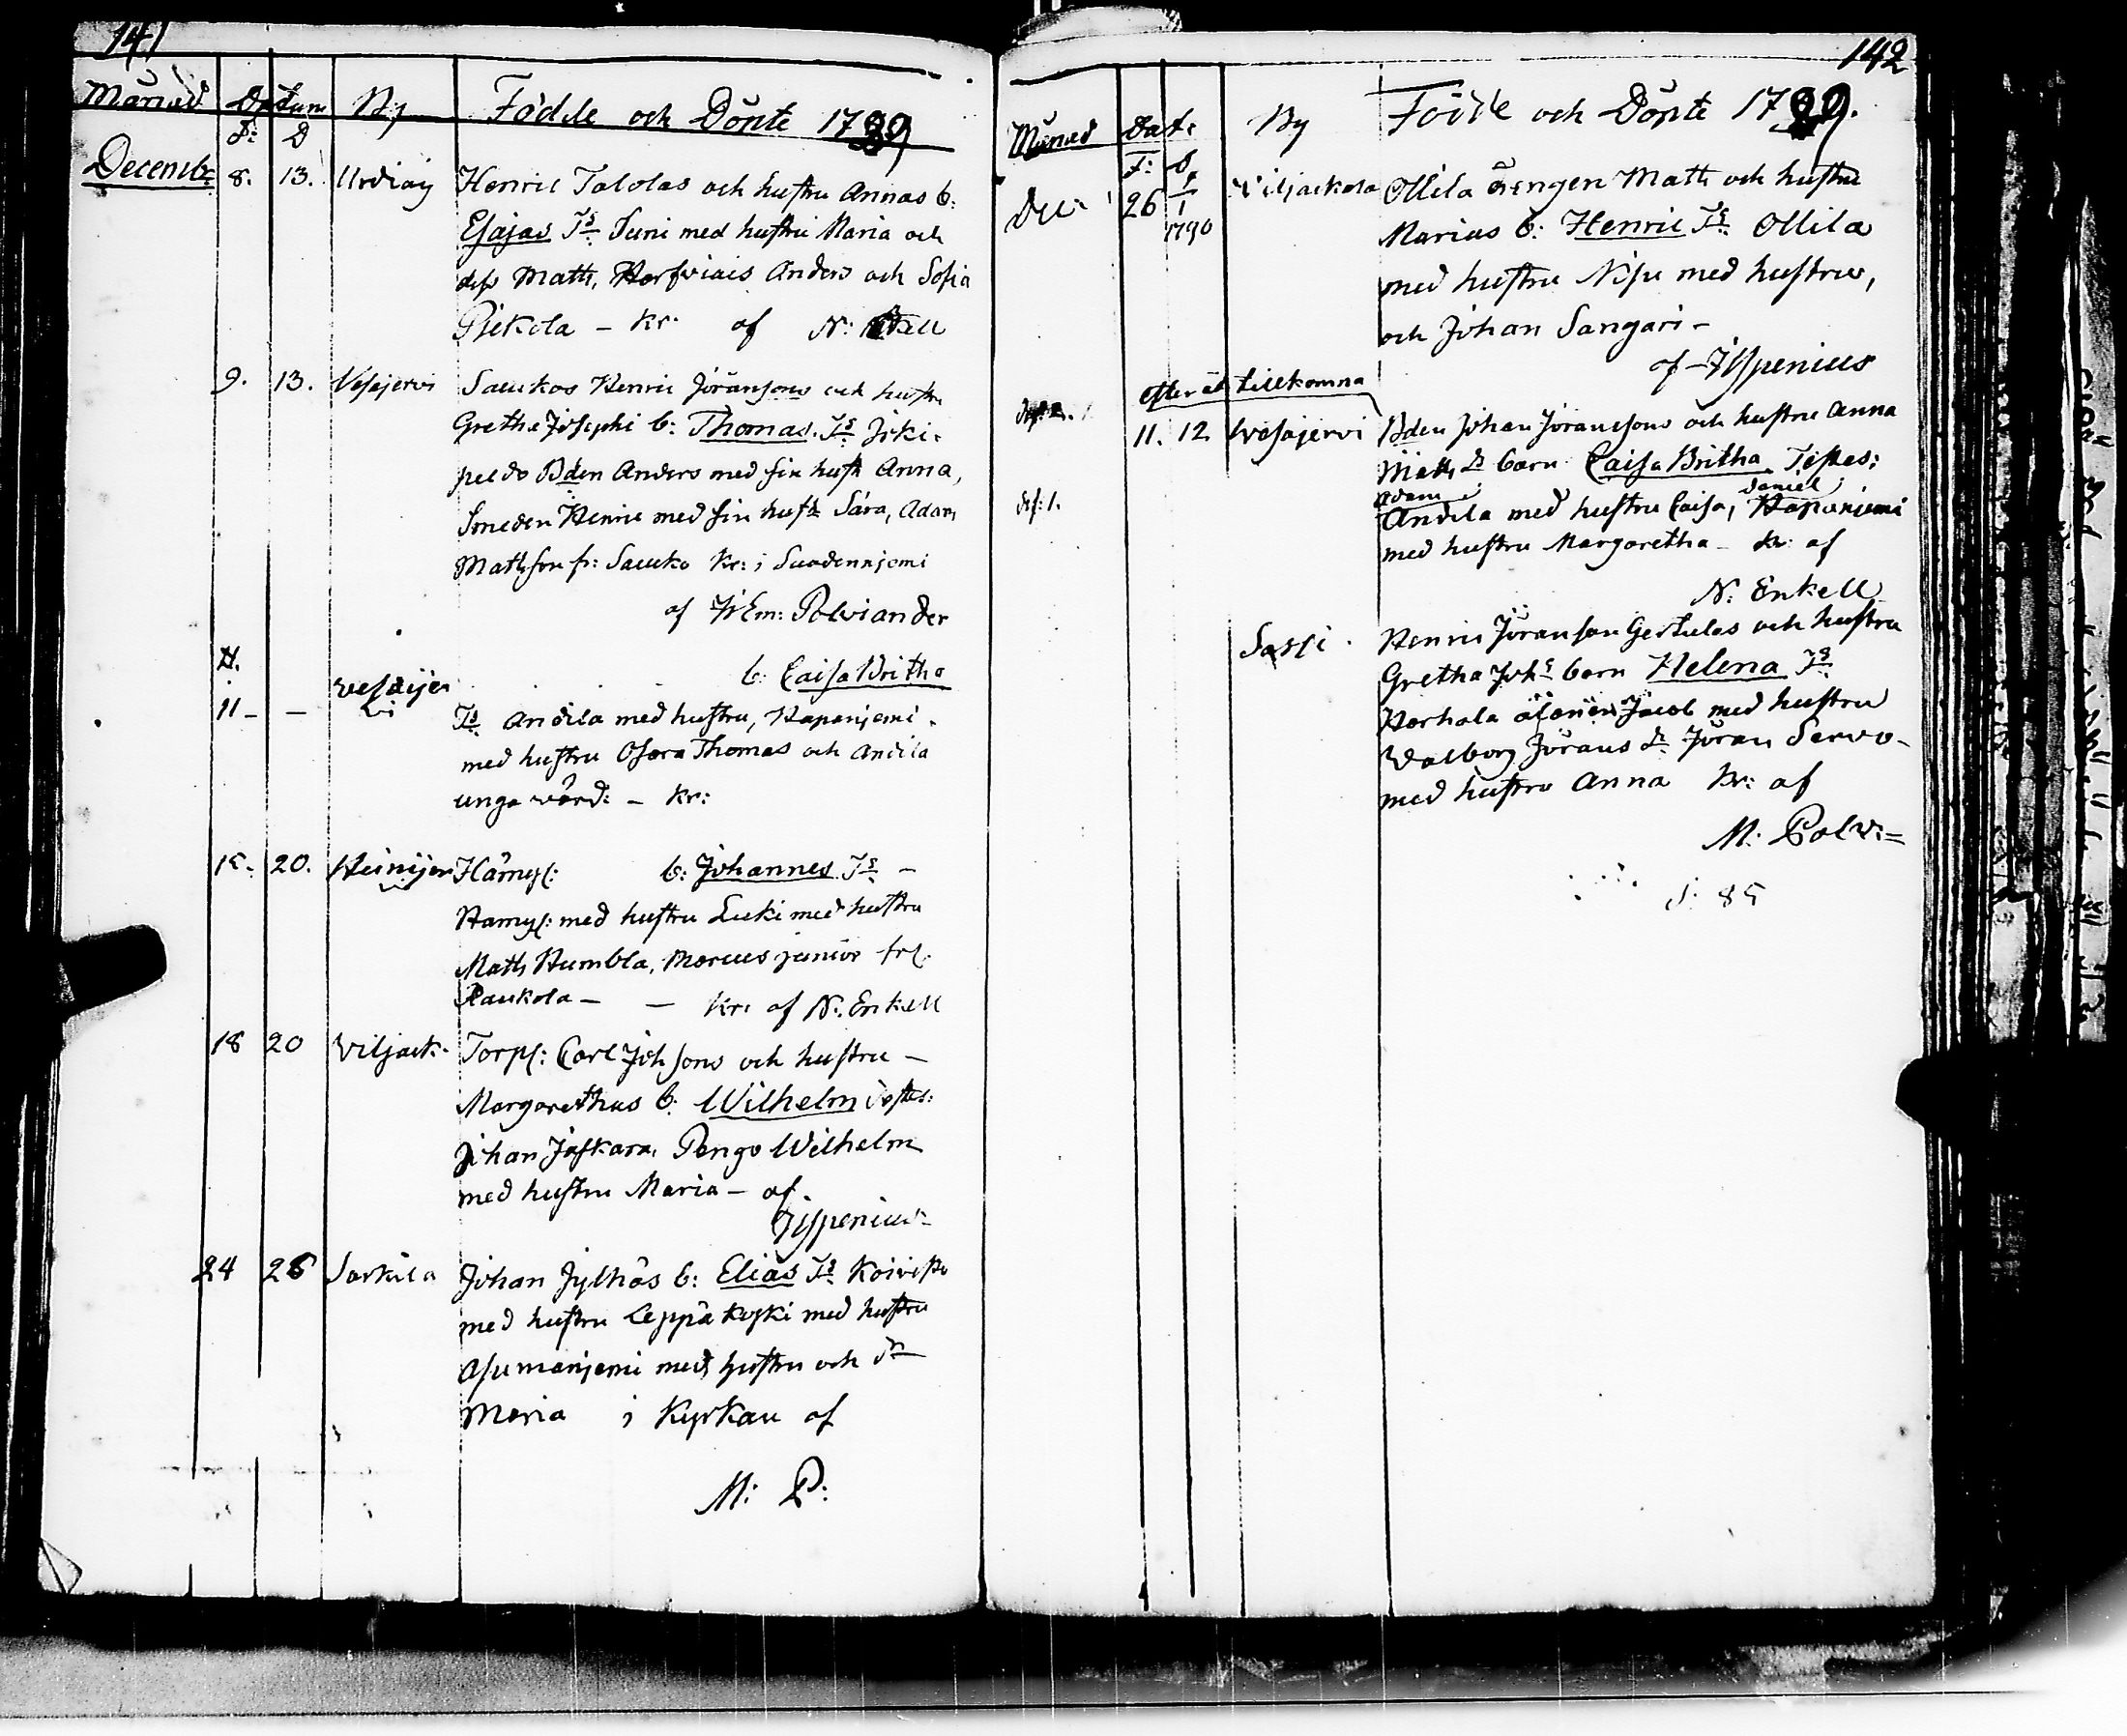 141
Månad Datum By Födde och Dönte 1789
F: D
Decemb: 8. 13. Urdiag Henric Talolas och hustru Annas b:
Esajas Ts. Suni med hustru Maria och
Matts, Anders och Sofia
Piekola – kr. af N: Enkell
9. 13. Vesajervi Saukos Henric Göransons och hustru
Gretha Josephi b: Thomas. Ts
Bden Anders med sin hustr Anna,
Smeden Henric med sin hustr Sara, Adam
Mathson fr: Sauko Kr: i Suodennjemi
af Polviander
b: Caisa Britha
11 – – Vesaijervi Ts. Andila med hustru, Hapanjemi
med hustru Osara Thomas och Andila
unga värd: – kr:
15. 20. Heinijer Hämyl: b: Johannes Ts –
Hamyl: med hustru Luki med hustru
Matts Humbla, Marcus junior frl.
Raukola – – kr: af N: Enkell
18 20 Viljack. Torpl: Carl Joh sons och hustru –
Margarethas b: Wilhelm Testes:
Johan Jaskara, Pengo Wilhelm
med hustru Maria – af.
Ispenius
24 26 Sarkila Johan Jylhäs b: Elias Ts Koivisto
med hustru Leppäkoski med hustru
Asumanjemi med hustru och dr
Maria i Kyrkan af
M: P:
142
Månad Dat: By Födde och Dönte 1789.
F: D
Dec: 26 1/1 1790 Viljackala Ollila Drengen Matts och hustru
Marias b: Henric Ts. Ollila
med hustru Nisu med hustru,
och Johan Sangari –
af Ispenius
efteråt tillkomna
11. 12 Vesajervi Bden Johan Göranssons och hustru Anna
Matts dr barn Caisa Britha Testes:
Adam Daniel
Andila med hustru Caisa, Hapanjemi
med hustru Margaretha – kr: af
N: Enkell
Sassi. Henric Göranson Gertulas och hustru
Gretha Johs barn Helena Ts
Karhala Jacob med hustru
Valborg Görans dr Göran Servo-
med hustru Anna kr: af
M: Polv:=
S: 85